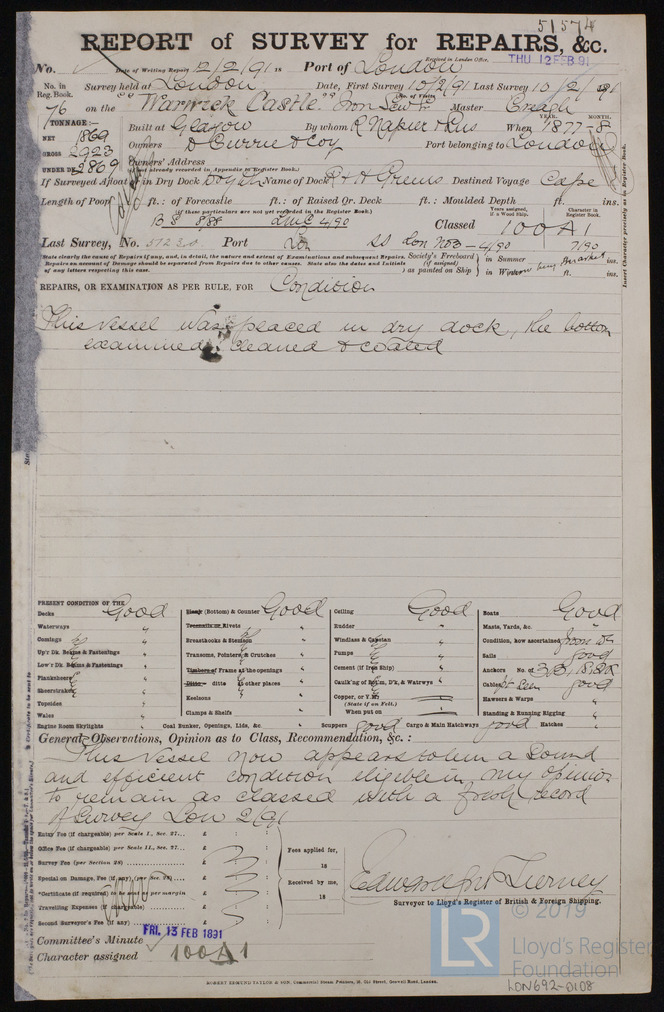 51574
REPORT of SURVEY for REPAIRS, &c.
No. Date of Writing Report 12/2/91 18 Port of London Received in London Office, THU 12 FEB 91
No. in Reg. Book. Survey held at London Date, First Survey 10/2/91 Last Survey 10/2/1891
76 on the "Warwick Castle" Iron Master Creagh
TONNAGE:— Built at Glasgow By whom R Napier & Sons When YEAR. 1877 MONTH. 8
NET 1869
GROSS 2923
UNDER DK 2869
Owners D Currie & Coy Port belonging to London
Owners' Address
(if not already recorded in Appendix to Register Book.)
If Surveyed Afloat or in Dry Dock Dry Dk Name of Dock R & H Greens Destined Voyage Cape
Length of Poop ft.: of Forecastle ft.: of Raised Qr. Deck ft.: Moulded Depth ft. ins.
(if these particulars are not yet recorded in the Register Book.)
BS 8.88 LMC 4/90 Classed Years assigned, if a Wood Ship. 100A1 Character in Register Book.
Last Survey, No. Port Lon SS Lon No3 – 4/90 7/90
State clearly the cause of Repairs if any, and, in detail, the nature and extent of Examinations and subsequent Repairs.
Repairs on account of Damage should be separated from Repairs due to other causes. State also the dates and Initials of any letters respecting this case.
Society's Freeboard (if assigned) as painted on Ship in Summer in Winter ft. ins.
Insert Character precisely as in Register Book.
REPAIRS, OR EXAMINATION AS PER RULE, FOR Condition
This vessel was placed in dry dock, the bottom
examined, cleaned & coated
PRESENT CONDITION OF THE
Decks Good
Waterways "
Comings "
Up'r Dk Beams & Fastenings "
Low'r Dk Beams & Fastenings "
Planksheers "
Sheerstrakes "
Topsides "
Wales "
Engine Room Skylights "
(Bottom) & Counter Good
Treenails or Rivets "
Breasthooks & Stemson "
Transoms, Pointers, & Crutches "
Timbers of Frame at the openings "
Ditto ditto at other places "
Keelsons "
Clamps & Shelfs "
Coal Bunker, Openings, Lids, &c. "
Ceiling Good
Rudder "
Windlass & Capstan "
Pumps "
Cement (if Iron Ship) "
Caulk'ng of Bot'm, D'k, & Watrwys "
Copper, or Y.M.
(State if on Felt.)
When put on
Scuppers good Cargo & Main Hatchways good
Boats Good
Masts, Yards, &c. "
Condition, how ascertained from Dk
Sails good
Anchors No. of 3B, 1S, 2K
Cables good
Hawsers & Warps "
Standing & Running Rigging "
Hatches "
General Observations, Opinion as to Class, Recommendation, &c. :
This vessel now appears to be in a Sound
and efficient condition eligible in my opinion
to remain as classed with a fresh record
of Survey Lon 2/91
Entry Fee (if chargeable) per Scale I., Sec. 27... £ : :
Office Fee (if chargeable) per Scale II., Sec. 27... £ : :
Survey Fee (per Section 28) £ : :
Special on Damage, Fee (if any) (per Sec. 28) £ : :
*Certificate (if required) to be sent as per margin
Travelling Expenses (if chargeable) £ : :
Second Surveyor's Fee (if any) £ : :
Fees applied for,
18
Received by me,
18
Edward Tierney
Surveyor to Lloyd's Register of British & Foreign Shipping.
Committee's Minute FRI. 13 FEB 1891
Character assigned 100A1
ROBERT EDMUND TAYLOR & SON, Commercial Steam Printers, 19, Old Street, Goswell Road, London.
LR
© 2019
Lloyd's Register
Foundation
LON692-0108